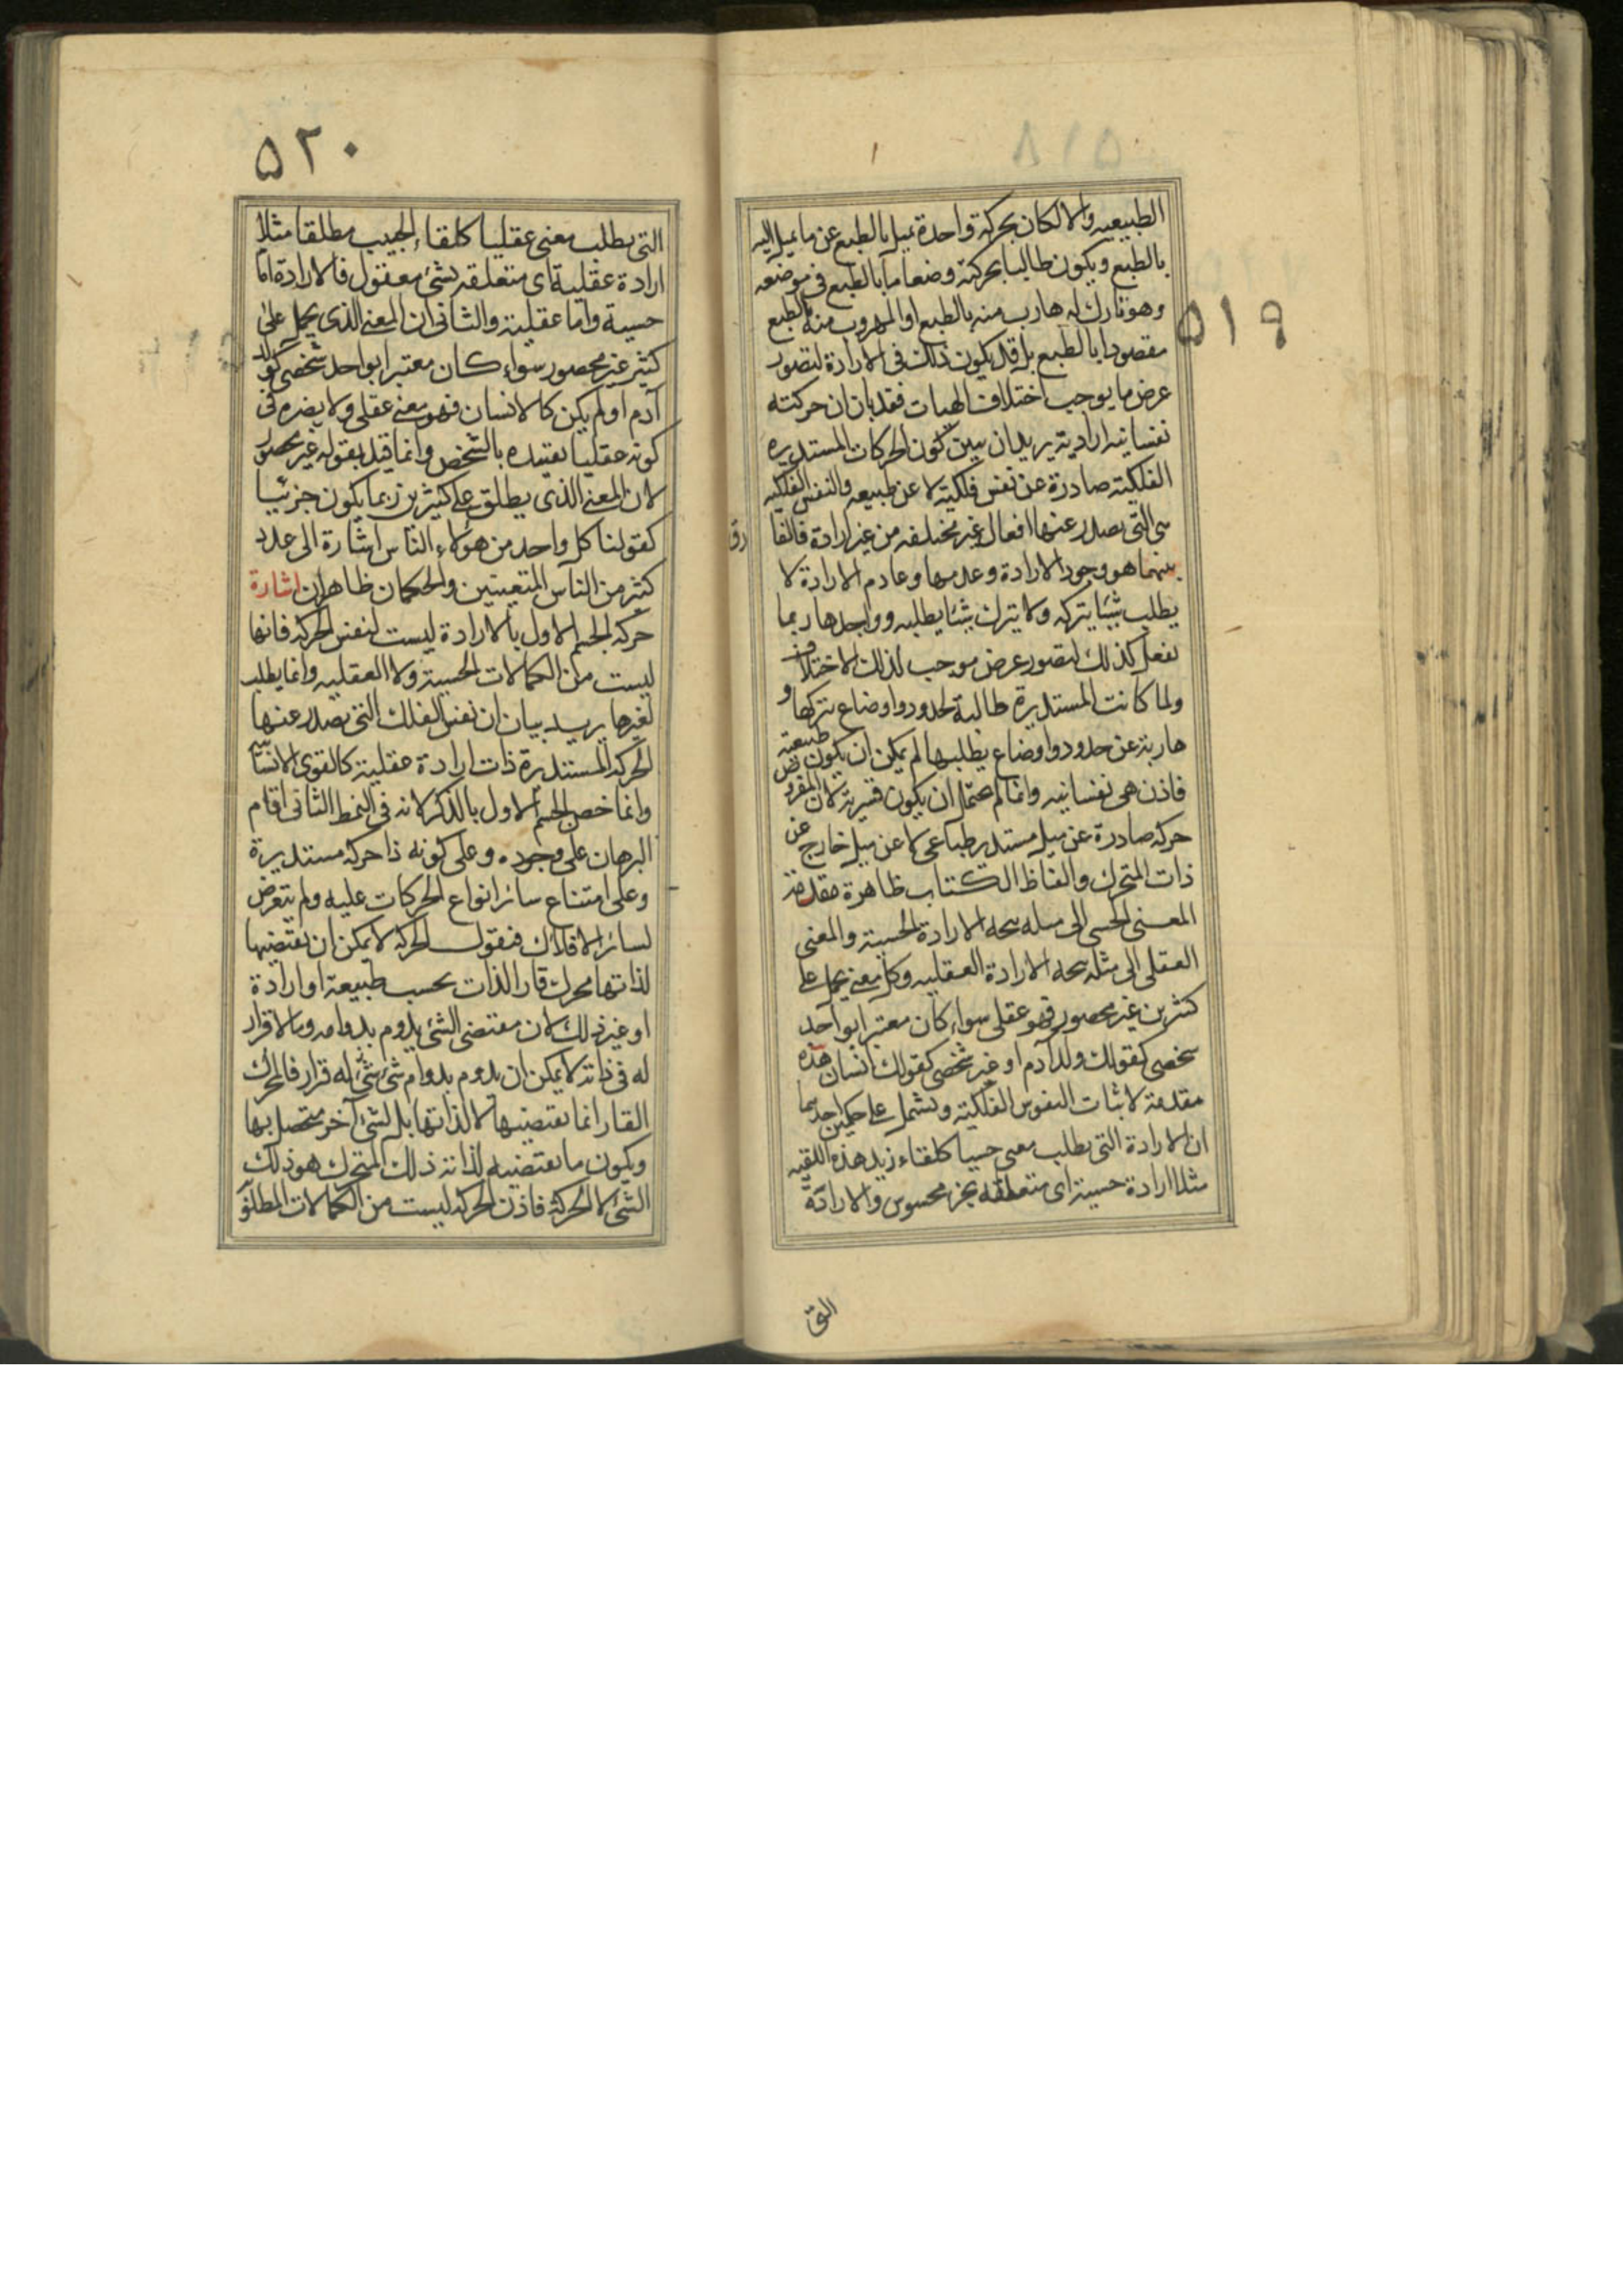 ٥١٩
الطبيعيه والا لكان بحركة واحدة يميل بالطبع عن ما يميل اليه
بالطبع ويكون طالبا بحركته وضعا ما بالطبع فى موضعه
وهو تارك له هارب منه بالطبع او المهروب منه بالطبع
مقصودا بالطبع بل قد يكون ذلك فى الارادة لتصور
عرض ما يوجب اختلاف الهيات فقد بان ان حركته
نفسانيه اراديته يريد ان يبين كون الحركات المستديره
الفلكيته صادرة عن نفس فلكيته لا عن طبيعه والنفس الفلكيه
هى التى يصدر عنها افعال غير مختلفه من غير ارادة فالفا رق
بينهما هو وجود الارادة وعدمها وعادم الارادة لا
يطلب شيئا يتركه ولا يترك شيئا يطلبه وواجدها ربما
يفعل كذلك لتصور عرض موجب لذلك الاختلاف
ولما كانت المستديرة طالبة لحدود واوضاع يتركها و
هاربة عن حدود واوضاع يطلبها لم يمكن ان يكون طبيعية
فاذن هى نفسانيه وانما لم يحتمل ان يكون قسرية لان المفروض
حركة صادرة عن ميل مستدير طباعى لا عن ميل خارج عن
ذات المتحرك والفاظ الكتاب ظاهرة مقدمة
المعنى الحسى الى مثله يتجه الارادة الحسية والمعنى
العقلى الى مثله يتجه الارادة العقليه وكل معنى يحمل على
كثيرين غير محصور فهو عقلى سواء كان معتبرا بواحد
شخصى كقولك ولد آدم او غير شخصى كقولك انسان هذه
مقدمة لاثبات النفوس الفلكيته وتشتمل على حكمين احدهما
ان الارادة التى يطلب معنى حسيا كلقاء زيد هذه اللقيه
مثلا ارادة حسية اى متعلقه بجزء محسوس والارادة
التى
٥٢٠
التى يطلب معنى عقليا كلقاء الحبيب مطلقا مثلا
ارادة عقلية اى متعلقه بشئ معقول فالارادة اما
حسية واما عقلية والثانى ان المعنى الذى يحمل على
كثير غير محصور سواء كان معتبرا بواحد شخصى كولد
آدم او لم يكن كالانسان فهو معنى عقلى ولا يضره فى
كونه عقليا تقييده بالشخص وانما قيد بقوله غير محصور
لان المعنى الذى يطلق على كثيرين ربما يكون جزئيا
كقولنا كل واحد من هولاء الناس اشارة الى عدد
كثير من الناس المتعينين والحكمان ظاهران اشارة
حركة الجسم الاول بالارادة ليست لنفس الحركة فانها
ليست من الكمالات الحسية ولا العقليه وانما يطلب
لغيرها يريد بيان ان نفس الفلك التى يصدر عنها
الحركة المستديرة ذات ارادة عقلية كالقوى الانسانيه
وانما خص الجسم الاول بالذكر لانه فى النمط الثانى اقام
البرهان على وجوده وعلى كونه ذا حركة مستديرة
وعلى امتناع سائر انواع الحركات عليه ولم يتعرض
لسائر الافلاك فنقول الحركة لا يمكن ان يقتضيها
لذاتها محرك قار الذات بحسب طبيعة او ارادة
او غير ذلك لان مقتضى الشئ يدوم بدوامه وما لا قرار
له فى ذاته لا يمكن ان يدوم بدوام شئ له قرار فالمحرك
القار انما يقتضيها لا لذاتها بل لشئ آخر يتحصل بها
ويكون ما يقتضيه لذاته ذلك المتحرك هو ذلك
الشئ لا الحركة فاذن الحركة ليست من الكمالات المطلقة